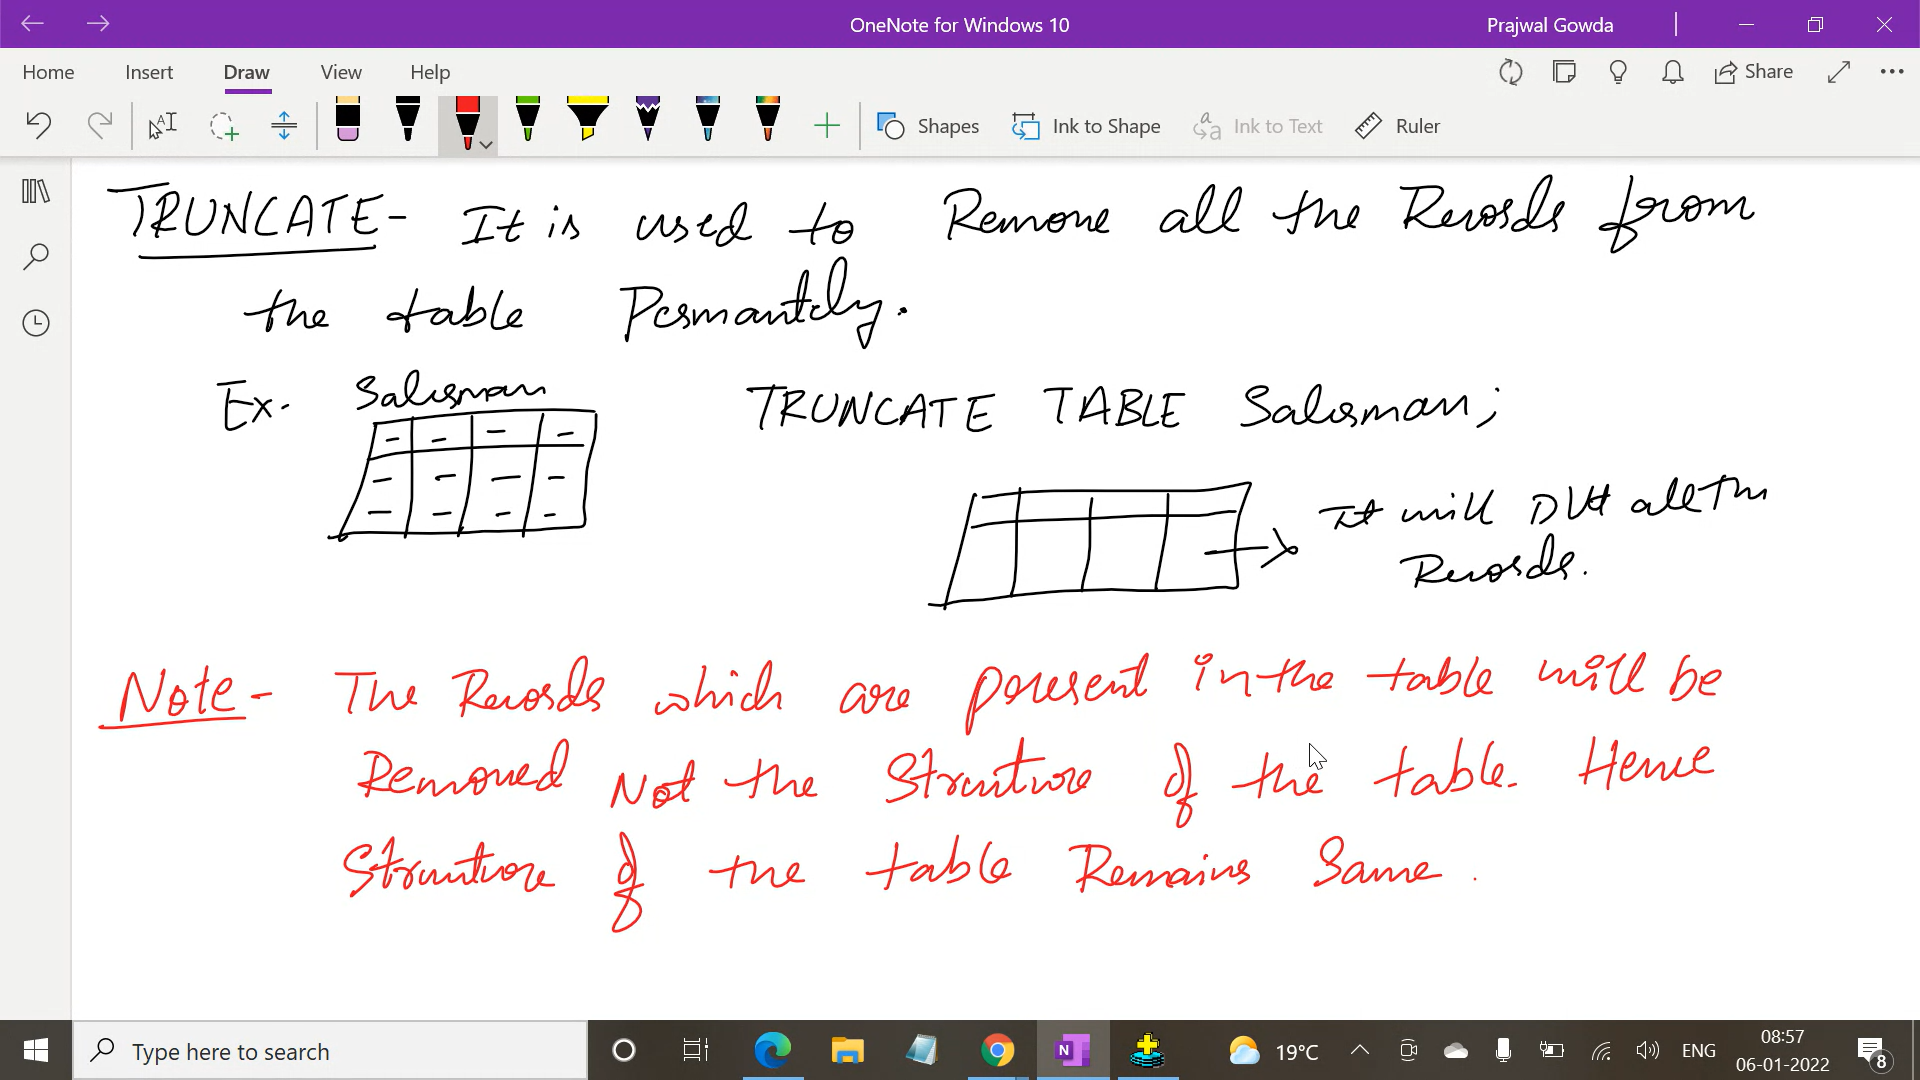 OneNote for Windows 10
Prajwal Gowda
Home Insert Draw View Help
Share
Shapes Ink to Shape Ink to Text Ruler
TRUNCATE- It is used to Remove all the Records from
the table Permantely.
Ex- Salesman
TRUNCATE TABLE Salesman;
It will Dlt all the
Records.
Note- The Records which are present in the table will be
Removed Not the Structure of the table. Hence
Structure of the table Remains Same.
Type here to search
19°C
ENG
08:57
06-01-2022
8